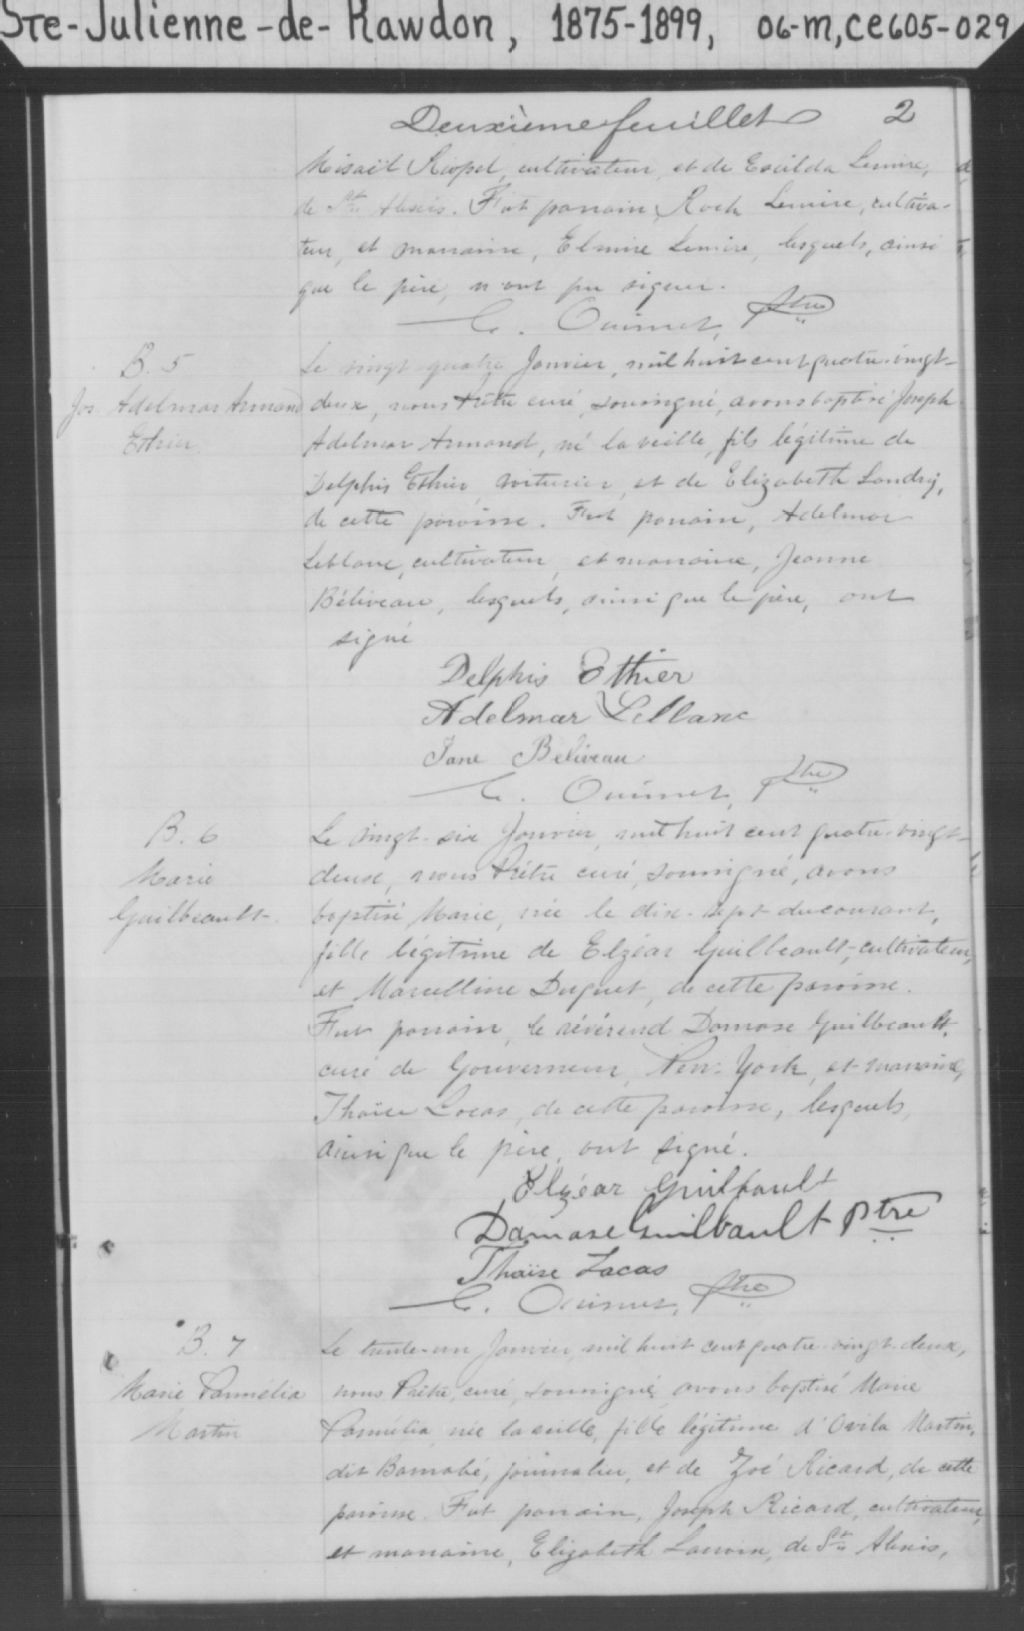 Ste-Julienne-de-Rawdon, 1875-1899, 06-M,CE605-029
Deuxième feuillet 2
Misaël Riopel, cultivateur, et de Exilda Lemire,
de St. Alexis. Fut parrain, Roch Lemire, cultiva-
teur, et marraine, Elmire Lemire, lesquels, ainsi
que le père, n'ont pu signer.
C. Ouimet, Ptre
B. 5
Jos. Adelmar Armand
Ethier
Le vingt-quatre Janvier, mil huit cent quatre-vingt-
deux, nous Prêtre curé, soussigné, avons baptisé Joseph
Adelmar Armand, né la veille, fils légitime de
Delphis Ethier, voiturier, et de Elizabeth Landry,
de cette paroisse. Fut parrain, Adelmar
Leblanc, cultivateur, et marraine, Jeanne
Béliveau, lesquels, ainsi que le père, ont
signé
Delphis Ethier
Adelmar Leblanc
Jane Beliveau
C. Ouimet, Ptre
B. 6
Marie
Guilbeault.
Le vingt-six Janvier, mil huit cent quatre-vingt-
deux, nous Prêtre curé, soussigné, avons
baptisé Marie, née le dix-sept du courant,
fille légitime de Elzéar Guilbeault, cultivateur,
et Marcelline Duguet, de cette paroisse.
Fut parrain, le révérend Damase Guilbeault,
curé de Gouverneur, New-York, et marraine,
Thaïse Lacas, de cette paroisse, lesquels,
ainsi que le père, ont signé.
Elzéar Guilbault
Damase Guilbault Ptre
Thaïse Lacas
C. Ouimet, Ptre
B. 7
Marie Parmélia
Martin
Le trente-un Janvier, mil huit cent quatre-vingt-deux,
nous Prêtre, curé, soussigné, avons baptisé Marie
Parmélia, née la veille, fille légitime d'Ovila Martin,
dit Barnabé, journalier, et de Zoé Ricard, de cette
paroisse. Fut parrain, Joseph Ricard, cultivateur,
et marraine, Elizabeth, de St. Alexis,